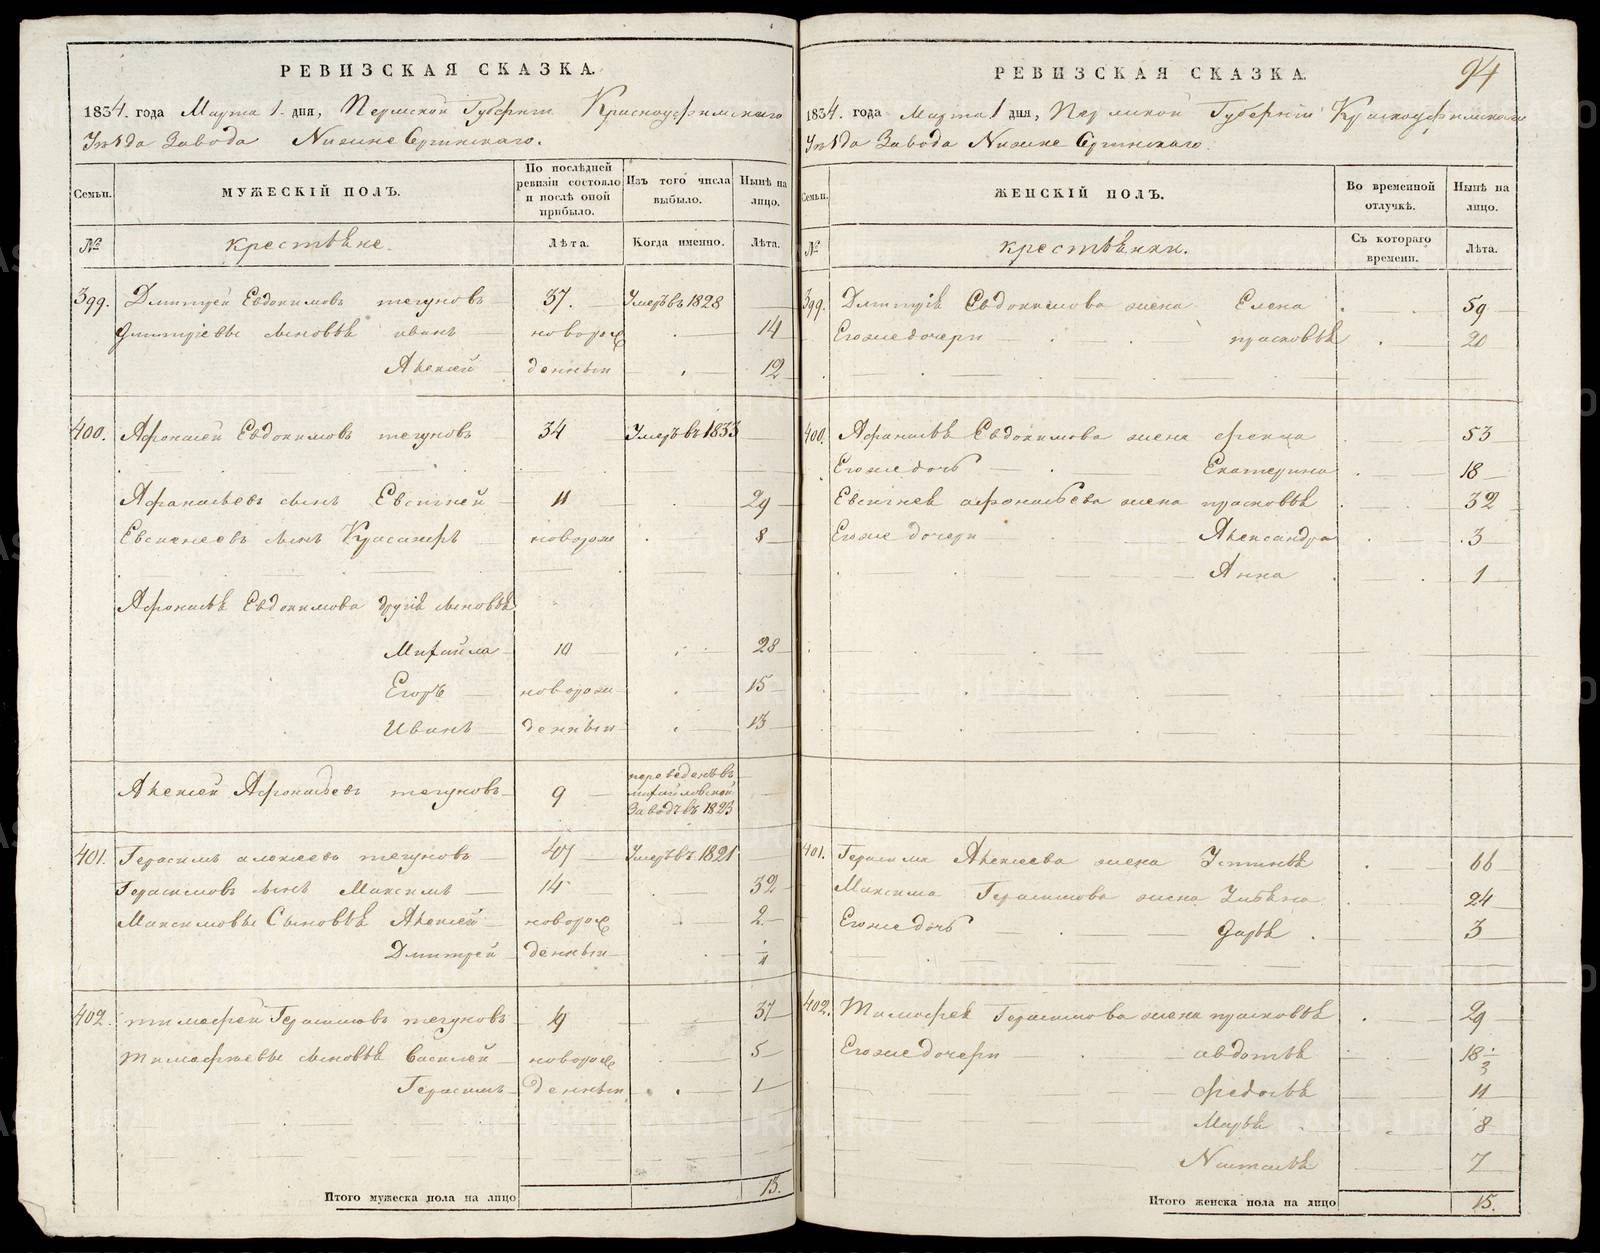 РЕВИЗСКАЯ СКАЗКА.
1834. года Марта 1. дня, Пермской Губерніи Красноуфимскаго
Уѣзда Завода Нижне Сергинскаго.
Семьи. МУЖЕСКІЙ ПОЛЪ. По послѣдней ревизіи состояло и послѣ оной прибыло. Изъ того числа выбыло. Нынѣ на лицо.
№ крестьяне. Лѣта. Когда именно. Лѣта.
399. Дмитрей Евдокимовъ 37. Умеръ въ 1828
Дмитріевы сыновья иванъ новорож 14
Алексей денныи 12
400. Афонасей Евдокимовъ 34 Умеръ въ 1833
Афанасьевъ сынъ Евсигней 11 29
Евсигнеевъ сынъ новорож 8
Афонасья Евдокимова другія сыновья
Михайла 10 28
Егоръ новорож 15
Иванъ денныи 13
Алексей Афонасьевъ 9 переведенъ въ михайловской Заводъ въ 1823
401. Герасимъ алексеевъ 47 Умеръ въ 1821
Герасимовъ сынъ Максимъ 14 32
Максимовы Сыновья Алексей новорож 2
Дмитрей денныи
402. тимофей Герасимовъ 19 37
тимофеевы сыновья Василей новорож 5
Герасимъ денныи 1
Итого мужеска пола на лицо 13.
94
РЕВИЗСКАЯ СКАЗКА.
1834. года Марта 1 дня, Пермской Губерніи Красноуфимскаго
Уѣзда Завода Нижне Сергинскаго.
Семьи. ЖЕНСКІЙ ПОЛЪ. Во временной отлучкѣ. Нынѣ на лицо.
№ крестьянки. Съ котораго времени. Лѣта.
399. Дмитрія Евдокимова жена Елена 59
Егоже дочери прасковья 20
400. Афанасья Евдокимова жена 53
Егоже дочь Екатерина 18
Евсигнея афонасьева жена прасковья 32
Егоже дочери Александра 3
Анна 1
401. Герасима Алексеева жена Устинья 66
Максима Герасимова жена 24
Егоже дочь Дарья 3
402. Тимофея Герасимова жена прасковья 29
Егоже дочери авдотья 18
федосья 11
Марья 8
Наталья 7
Итого женска пола на лицо 15.
METRIKI.GASO-URAL.RU